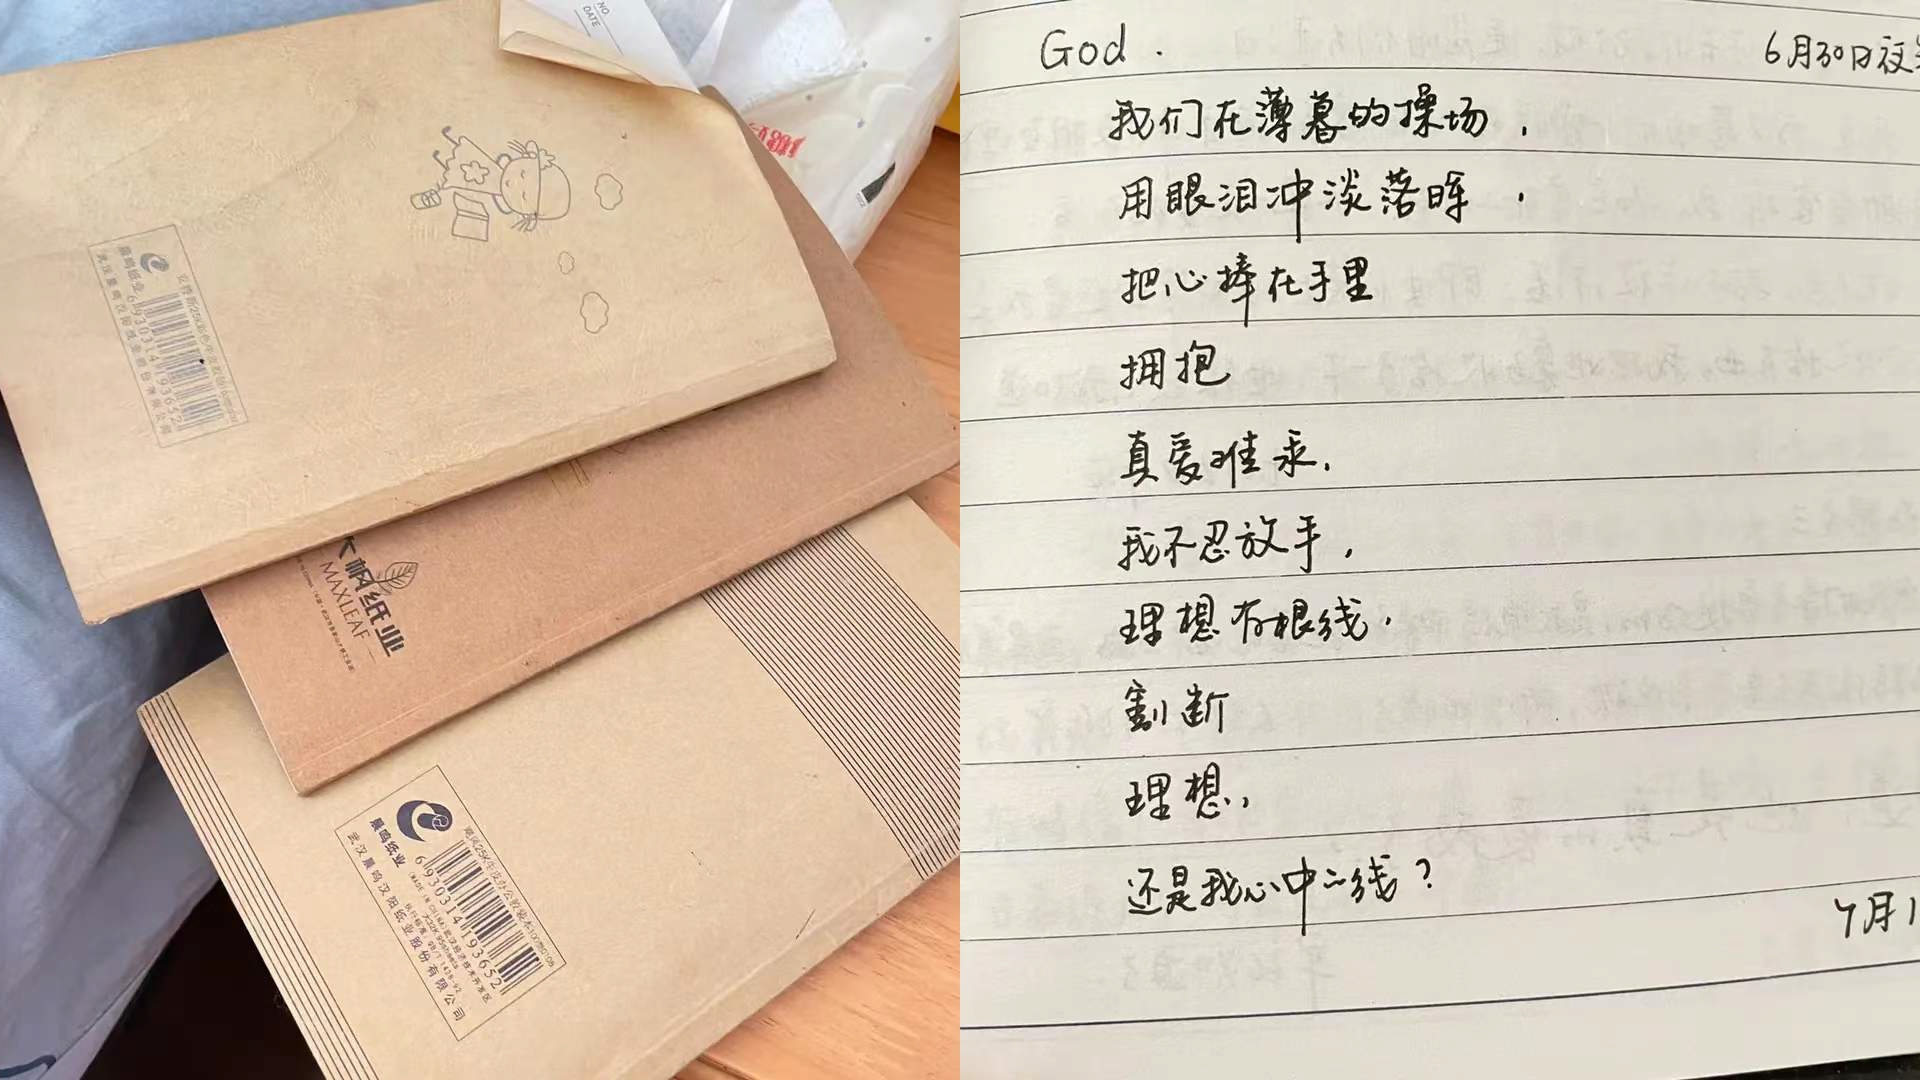 NO.
DATE
晨鸣纸业
6930314193652
武汉晨鸣汉阳纸业股份有限公司
大枫纸业
MAXLEAF
晨鸣纸业
6930314193652
武汉晨鸣汉阳纸业股份有限公司
God.
6月30日夜
我们在薄暮的操场,
用眼泪冲淡落晖.
把心捧在手里
拥抱
真爱难求,
我不忍放手,
理想有根线.
割断
理想,
还是我心中的线?
7月1